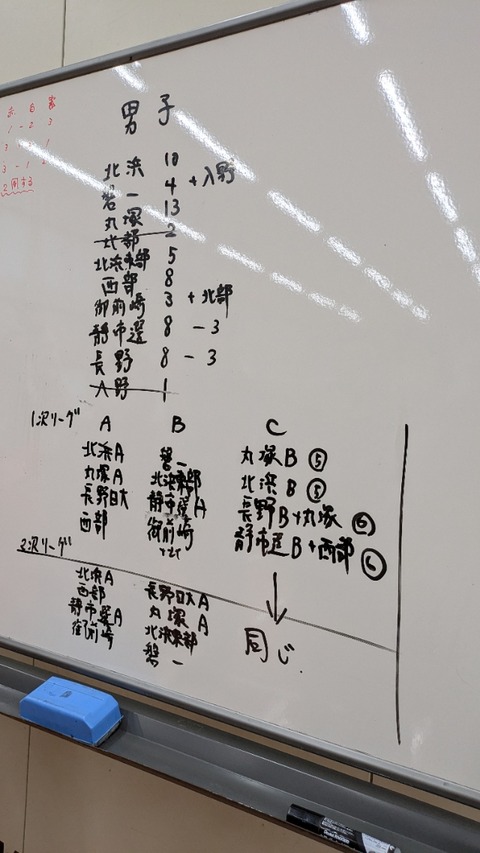 赤 B 審
1 - 2 3
3 1
3 - 1 2
2周する
男子
北浜 10
磐一 4 +入野
丸塚 13
北部 2
北浜東部 5
西部 8
御前崎 3 +北部
静市選 8 -3
長野 8 -3
入野 1
1次リーグ A B C
北浜A 磐一 丸塚B ⑤
丸塚A 北浜東部 北浜B ⑤
長野日大 静市選A 長野B+丸塚 ⑥
西部 御前崎 静市選B+西部 ⑥
2次リーグ
北浜A 長野日大A
西部 丸塚A
静市選A 北浜東部
御前崎 磐一
同じ